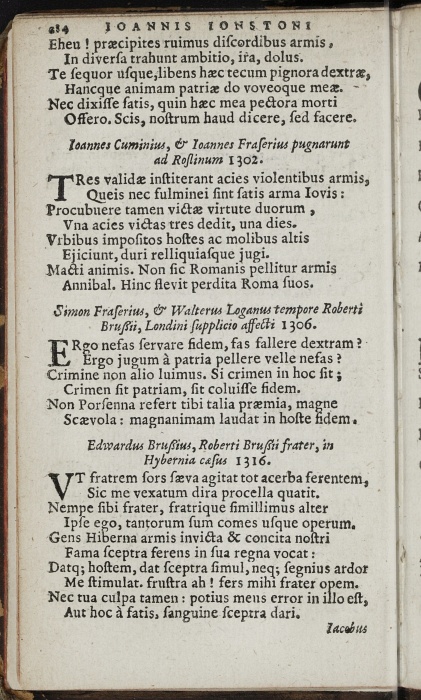 284 IOANNIS IONSTONI
Eheu ! præcipites ruimus discordibus armis,
In diversa trahunt ambitio, ira, dolus.
Te sequor usque, libens hæc tecum pignora dextræ,
Hancque animam patriæ do voveoque meæ.
Nec dixisse satis, quin hæc mea pectora morti
Offero. Scis, nostrum haud dicere, sed facere.
Ioannes Cuminius, & Ioannes Fraserius pugnarunt
ad Roslinum 1302.
TRes validæ institerant acies violentibus armis,
Queis nec fulminei sint satis arma Iovis :
Procubuere tamen victæ virtute duorum ,
Vna acies victas tres dedit, una dies.
Vrbibus impositos hostes ac molibus altis
Ejiciunt, duri relliquiasque jugi.
Macti animis. Non sic Romanis pellitur armis
Annibal. Hinc flevit perdita Roma suos.
Simon Fraserius, & Walterus Loganus tempore Roberti
Brussii, Londini supplicio affecti 1306.
ERgo nefas servare fidem, fas fallere dextram ?
Ergo jugum à patria pellere velle nefas ?
Crimine non alio luimus. Si crimen in hoc sit ;
Crimen sit patriam, sit coluisse fidem.
Non Porsenna refert tibi talia præmia, magne
Scævola : magnanimam laudat in hoste fidem.
Edwardus Brussius, Roberti Brussii frater, in
Hybernia cæsus 1316.
VT fratrem sors sæva agitat tot acerba ferentem,
Sic me vexatum dira procella quatit.
Nempe sibi frater, fratrique simillimus alter
Ipse ego, tantorum sum comes usque operum.
Gens Hiberna armis invicta & concita nostri
Fama sceptra ferens in sua regna vocat :
Datq; hostem, dat sceptra simul, neq; segnius ardor
Me stimulat. frustra ah ! fers mihi frater opem.
Nec tua culpa tamen : potius mens error in illo est,
Aut hoc à fatis, sanguine sceptra dari.
Iacobus